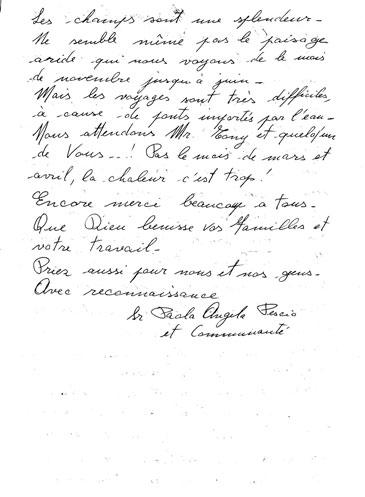 Les champs sont une splendeur-
Ne semble même pas le paisage
aride qui nous voyons de le mois
de novembre jusqu'à juin-
Mais les voyages sont très difficiles,
à cause de ponts importés par l'eau-
Nous attendons Mr. Tony et quelqu'un
de Vous--! Pas le mois de mars et
avril, la chaleur c'est trop!
Encore merci beaucoup à tous-
Que Dieu benisse vos familles et
votre travail-
Priez aussi pour nous et nos gens-
Avec reconnaissance
Sr Paola Angela Pescio
et Communauté